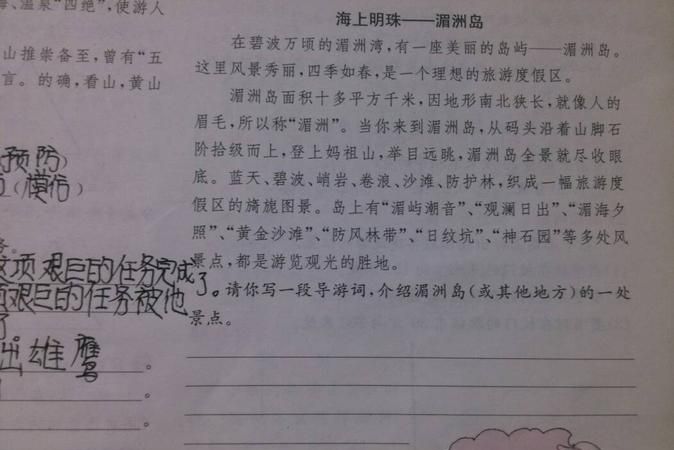 每、温泉“四绝”,使游人
山推崇备至,曾有“五
言。的确,看山,黄山
预防)
(模仿)
这项艰巨的任务完成
了。
项艰巨的任务被他
了。
出雄鹰。
海上明珠——湄洲岛
在碧波万顷的湄洲湾,有一座美丽的岛屿——湄洲岛。
这里风景秀丽,四季如春,是一个理想的旅游度假区。
湄洲岛面积十多平方千米,因地形南北狭长,就像人的
眉毛,所以称“湄洲”。当你来到湄洲岛,从码头沿着山脚石
阶拾级而上,登上妈祖山,举目远眺,湄洲岛全景就尽收眼
底。蓝天、碧波、峭岩、卷浪、沙滩、防护林,织成一幅旅游度
假区的旖旎图景。岛上有“湄屿潮音”、“观澜日出”、“湄海夕
照”、“黄金沙滩”、“防风林带”、“日纹坑”、“神石园”等多处风
景点,都是游览观光的胜地。
请你写一段导游词,介绍湄洲岛(或其他地方)的一处
景点。